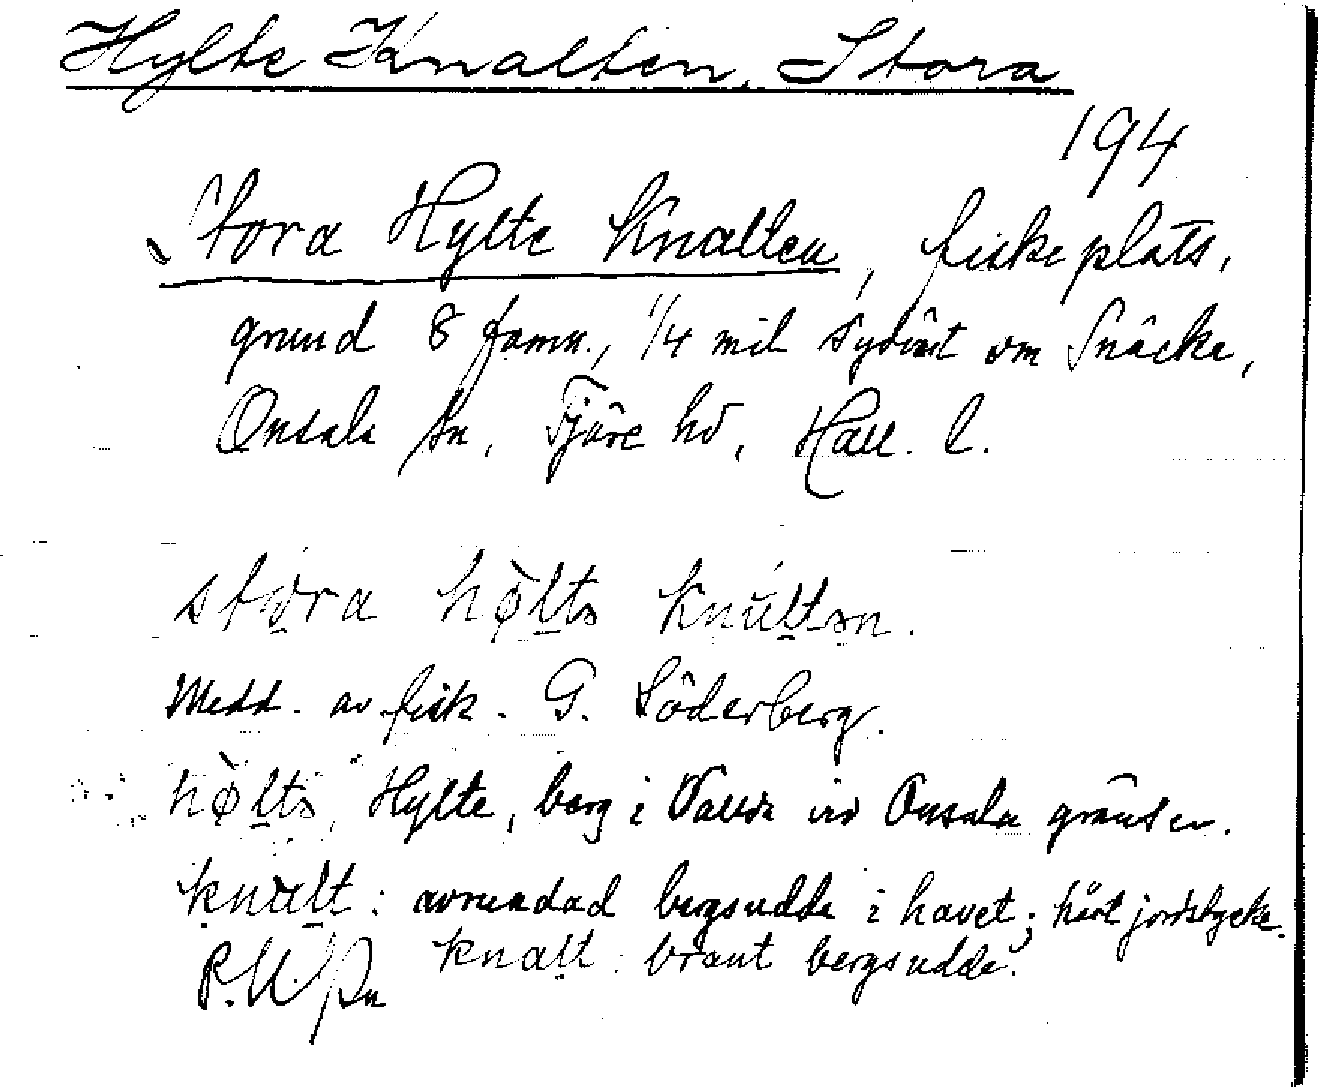 Hylte Knalten, Stora
194
Stora Hylte Knalten, fiskeplats,
grund 8 famn., 1/4 mil sydväst om Snäcke,
Onsala sn, Fjäre hd, Hall. l.
stora hølts knultən.
Medd. av fisk. G. Söderberg.
hølts, Hylte, berg i Vallda vid Onsala gränsen.
knult: avrundad bergsudde i havet; hårt jordstycke.
knalt: brant bergsudde.